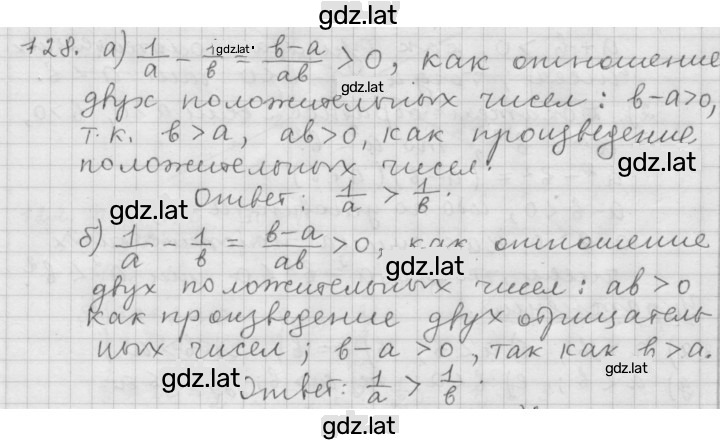 gdz.lat
728. а) 1/a - 1/b = b-a/ab > 0, как отношение
gdz.lat
gdz.lat
двух положительных чисел: b-a>0,
т.к. b>a, ab>0, как произведение
положительных чисел.
gdz.lat
Ответ: 1/a > 1/b.
gdz.lat
б) 1/a - 1/b = b-a/ab > 0, как отношение
gdz.lat
двух положительных чисел: ab>0
как произведение двух отрицатель-
ных чисел; b-a>0, так как b>a.
gdz.lat
gdz.lat
Ответ: 1/a > 1/b.
gdz.lat